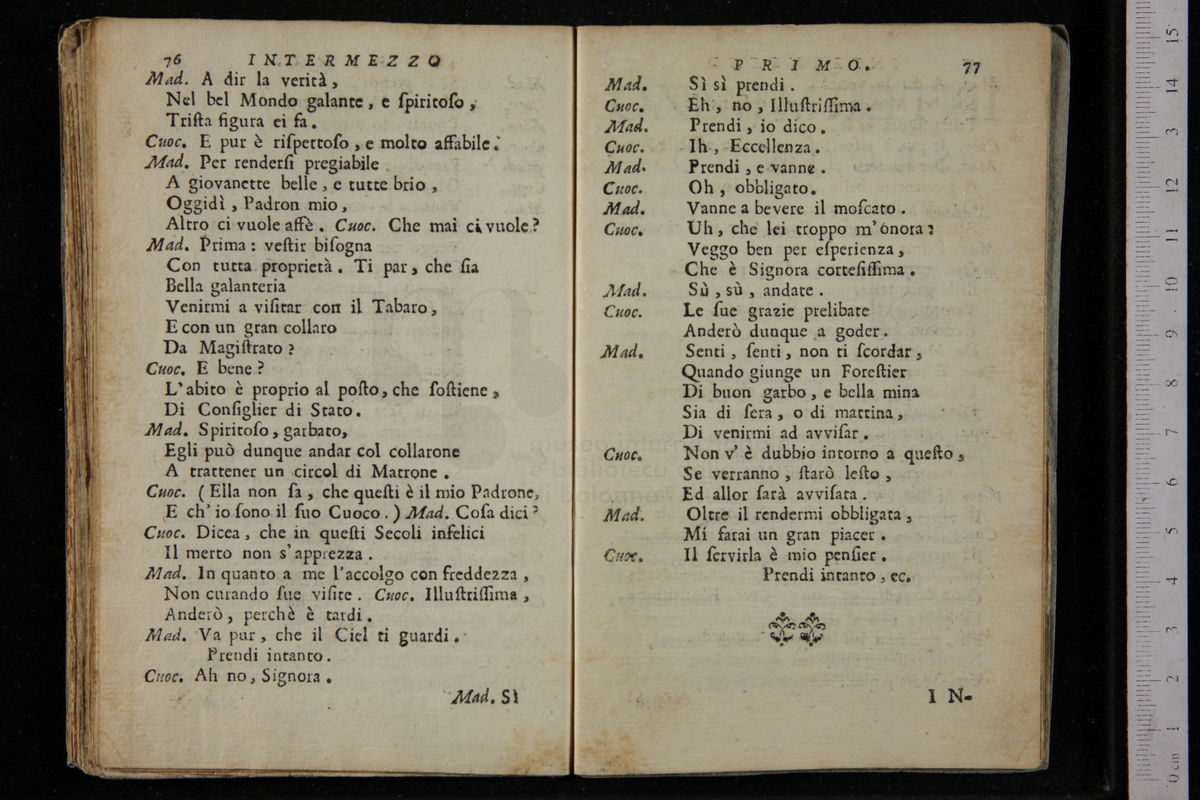 76 INTERMEZZO
Mad. A dir la verità,
Nel bel Mondo galante, e ſpiritoſo,
Triſta figura ei fa.
Cuoc. E pur è riſpettoſo, e molto affabile.
Mad. Per renderſi pregiabile
A giovanette belle, e tutte brio,
Oggidì, Padron mio,
Altro ci vuole affè. Cuoc. Che mai ci vuole?
Mad. Prima: veſtir biſogna
Con tutta proprietà. Ti par, che ſia
Bella galanteria
Venirmi a viſitar con il Tabaro,
E con un gran collaro
Da Magiſtrato?
Cuoc. E bene?
L'abito è proprio al poſto, che ſoſtiene,
Di Conſiglier di Stato.
Mad. Spiritoſo, garbato,
Egli può dunque andar col collarone
A trattener un circol di Matrone.
Cuoc. (Ella non ſa, che queſti è il mio Padrone,
E ch'io ſono il ſuo Cuoco.) Mad. Coſa dici?
Cuoc. Dicea, che in queſti Secoli infelici
Il merto non s'apprezza.
Mad. In quanto a me l'accolgo con freddezza,
Non curando ſue viſite. Cuoc. Illuſtriſſima,
Anderò, perchè è tardi.
Mad. Va pur, che il Ciel ti guardi.
Prendi intanto.
Cuoc. Ah no, Signora.
Mad. Sì
PRIMO. 77
Mad. Sì sì prendi.
Cuoc. Eh, no, Illuſtriſſima.
Mad. Prendi, io dico.
Cuoc. Ih, Eccellenza.
Mad. Prendi, e vanne.
Cuoc. Oh, obbligato.
Mad. Vanne a bevere il moſcato.
Cuoc. Uh, che lei troppo m'onora:
Veggo ben per eſperienza,
Che è Signora corteſiſſima.
Mad. Sù, sù, andate.
Cuoc. Le ſue grazie prelibate
Anderò dunque a goder.
Mad. Senti, ſenti, non ti ſcordar,
Quando giunge un Foreſtier
Di buon garbo, e bella mina
Sia di ſera, o di mattina,
Di venirmi ad avviſar.
Cuoc. Non v'è dubbio intorno a queſto,
Se verranno, ſtarò leſto,
Ed allor ſarà avviſata.
Mad. Oltre il rendermi obbligata,
Mi farai un gran piacer.
Cuoc. Il ſervirla è mio penſier.
Prendi intanto, ec.
IN-